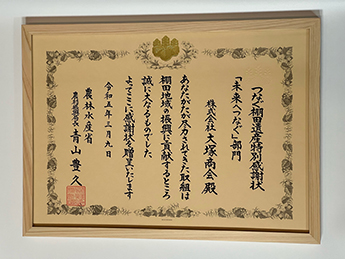 つなぐ棚田遺産特別感謝状
「未来へつなぐ」部門
株式会社大塚商会殿
あなたがたが尽力されてきた取組は
棚田地域の振興に貢献するところ
誠に大なるものでした
よってここに感謝状を贈呈いたします
令和五年三月九日
農林水産省
農村振興局長 青山豊久